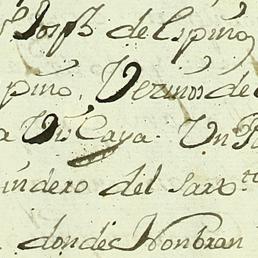 Josph de Espino
spino, Vezinos de
a Vn Caya. Un
indero del sarxto
donde Nonbran